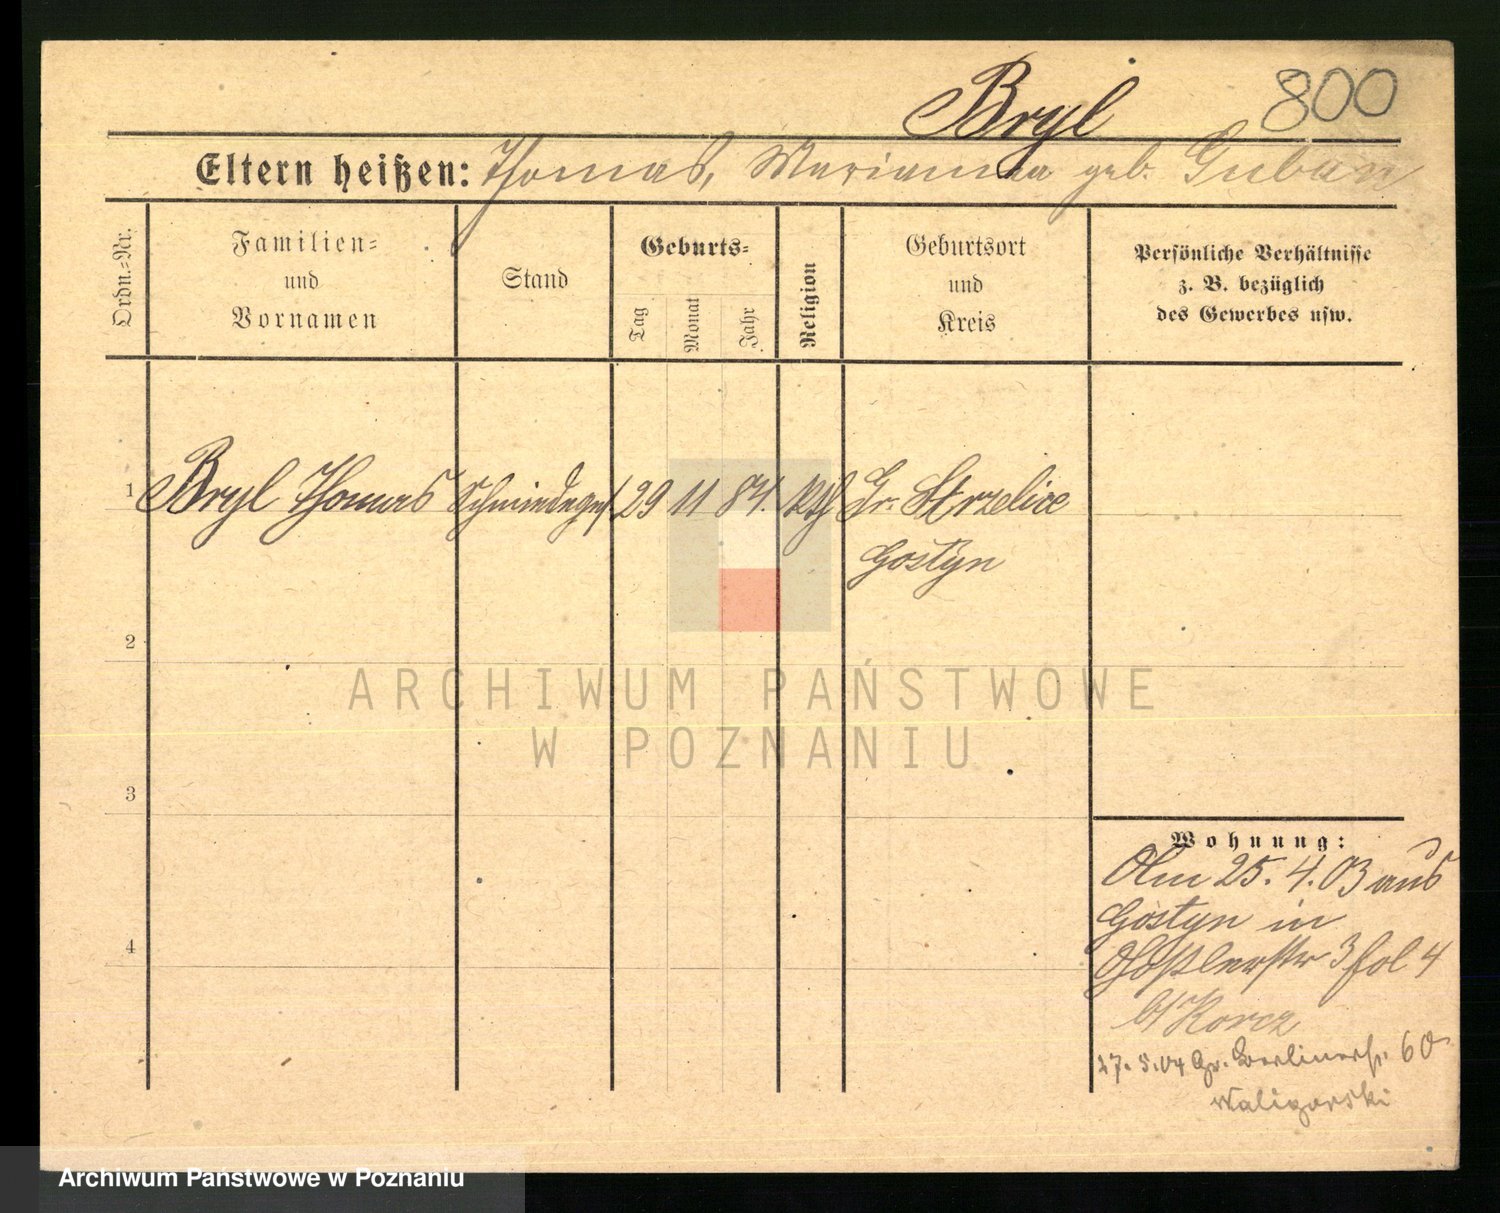 Bryl 800
Eltern heißen: Thomas, Marianna geb. Guban
Ordn.=Nr.
Familien=
und
Vornamen
Stand
Geburts=
Tag
Monat
Jahr
Religion
Geburtsort
und
Kreis
Persönliche Verhältnisse
z. B. bezüglich
des Gewerbes usw.
1 Bryl Thomas Schmiedeges 29 11 84. kth Gr. Strzelice
Gostyn
2
ARCHIWUM PAŃSTWOWE
W POZNANIU
3
Wohnung:
Am 25. 4. 03 aus
Gostyn in
3 fol 4
b/ Korcz
4
27. 5. 04 Gr. Berlinerstr. 60
Waligorski
Archiwum Państwowe w Poznaniu